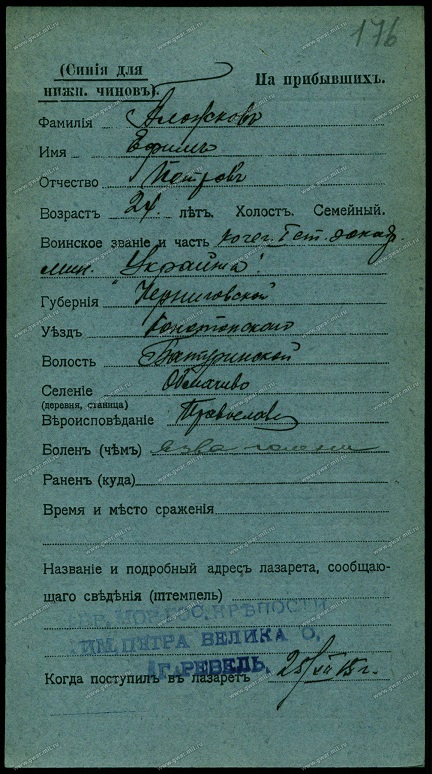 176
(Синія для
нижн. чиновъ).
На прибывшихъ.
Фамилія Аложковъ
Имя Ефимъ
Отчество Петровъ
Возрастъ 24 лѣтъ. Холостъ. Семейный.
Воинское званіе и часть кочег. 1 ст. эскадр.
мин. "Украйна"
Губернія Черниговской
Уѣздъ Конотопскаго
Волость Батуринской
Селеніе Обмачево
(деревня, станица)
Вѣроисповѣданіе Православ
Боленъ (чѣмъ) язва голени
Раненъ (куда)
Время и мѣсто сраженія
Названіе и подробный адресъ лазарета, сообщаю-
щаго свѣдѣнія (штемпель)
МОР. ГОС. КРѢПОСТИ
ИМ. ПЕТРА ВЕЛИКАГО,
Г. РЕВЕЛЬ.
Когда поступилъ въ лазаретъ 25/XII 15 г.
www.gwar.mil.ru